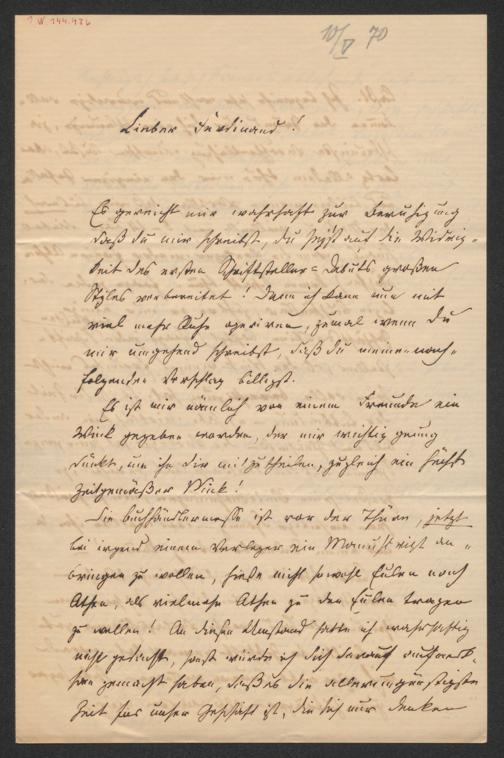 I N 144.426
10/V 70
Lieber Ferdinand!
Es gereicht mir wahrhaft zur Beruhigung
daß du mir schreibst, du seist auf die Widrig-
keit des ersten Schriftsteller=Debuts großen
Styles vorbereitet! Denn ich kann nun mit
viel mehr Ruhe operiren, zumal wenn du
mir umgehend schreibst, daß du meinen nach-
folgenden Vorschlag billigst.
Es ist mir nämlich von einem Freunde ein
Wink gegeben worden, der mir wichtig genug
dünkt, um ihn dir mitzutheilen, zugleich ein höchst
zeitgemäßer Wink!
Die Buchhändlermesse ist vor der Thüre, jetzt
bei irgend einem Verleger ein Manuskript an-
bringen zu wollen, hieße nicht sowohl Eulen nach
Athen, als vielmehr Athen zu den Eulen tragen
zu wollen! An diesen Umstand hatte ich wahrhaftig
nicht gedacht, sonst würde ich dich darauf aufmerk-
sam gemacht haben, daß es die allerungünstigste
Zeit für unser Geschäft ist, die sich nur denken